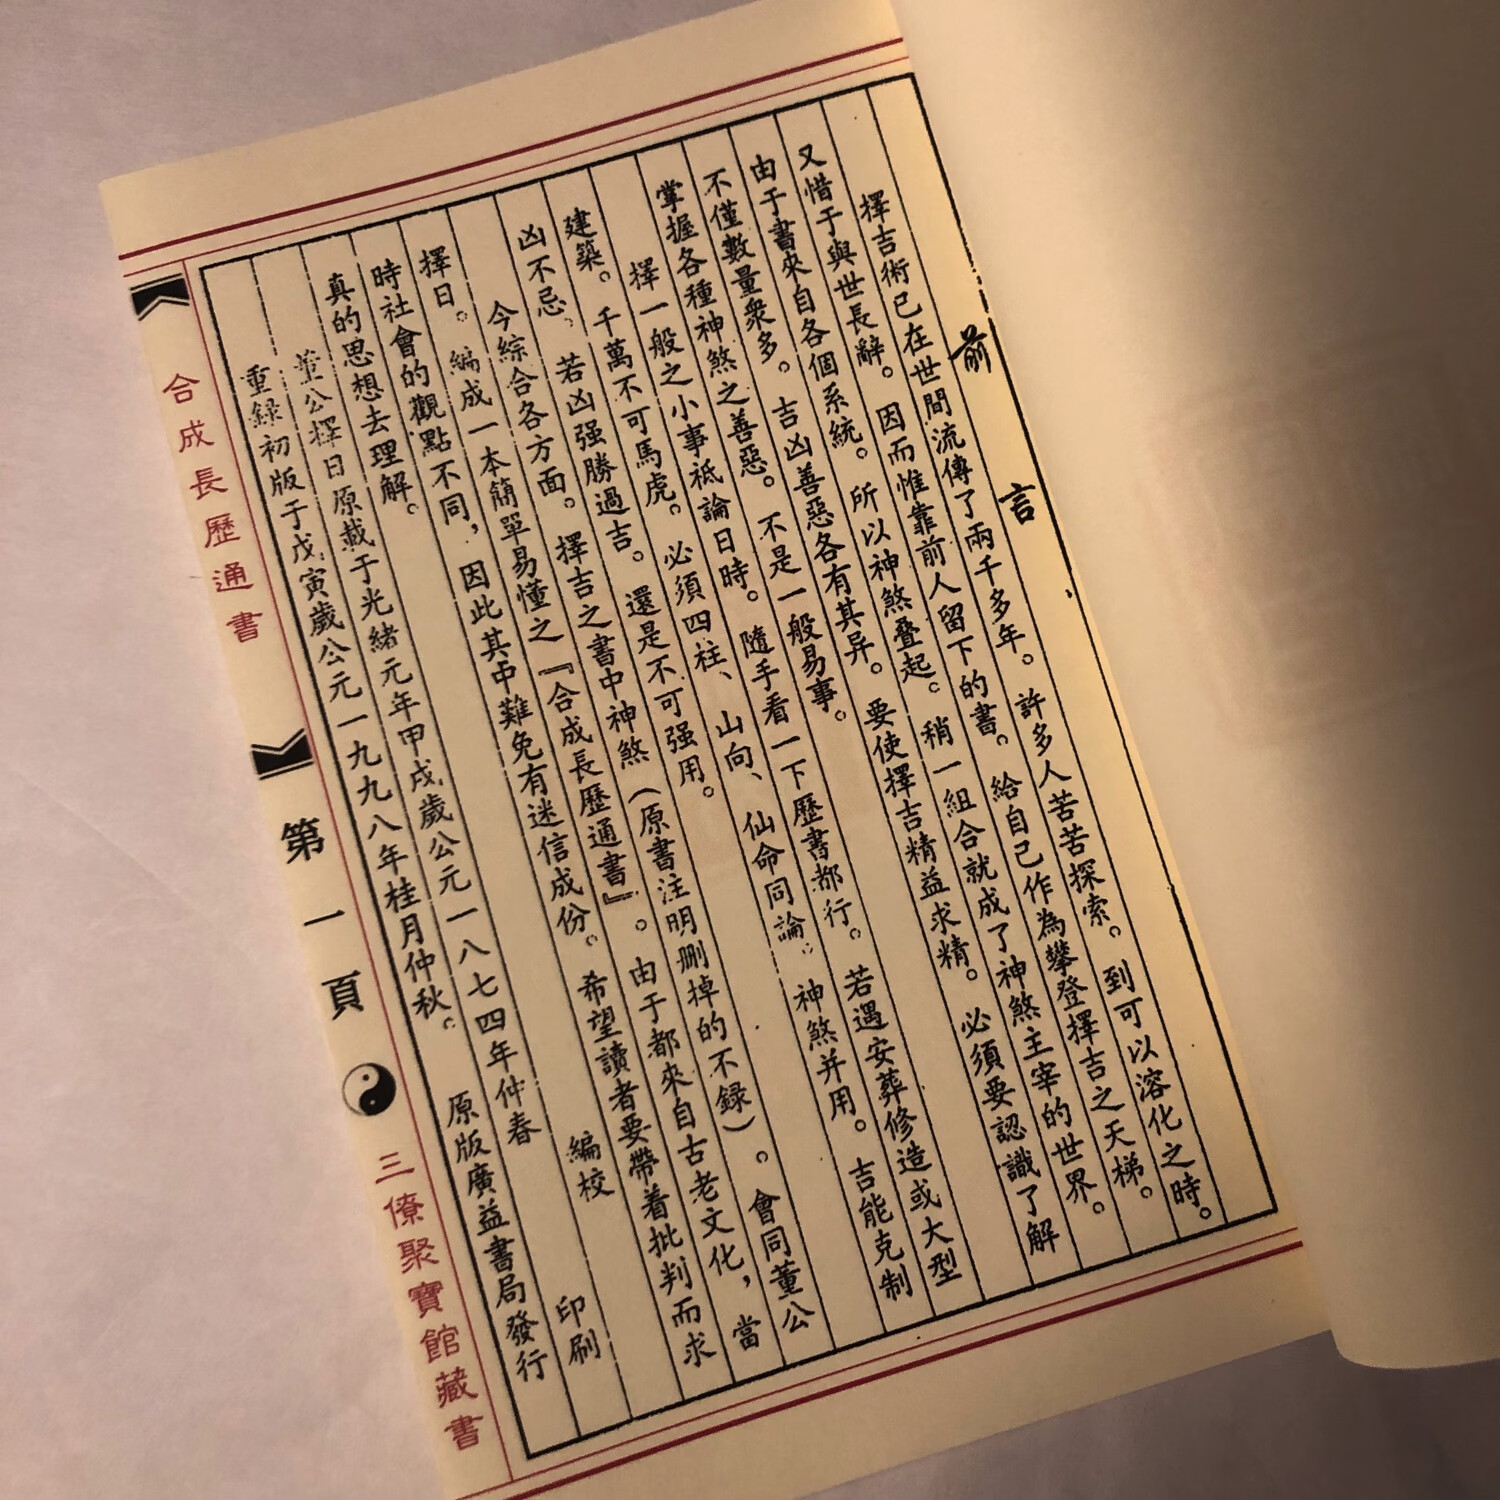 前言
擇吉術已在世間流傳了兩千多年。許多人苦苦探索。到可以溶化之時。
又惜于與世長辭。因而惟靠前人留下的書。給自己作為攀登擇吉之天梯。
由于書來自各個系統。所以神煞叠起。稍一組合就成了神煞主宰的世界。
不僅數量衆多。吉凶善惡各有其异。要使擇吉精益求精。必須要認識了解
掌握各種神煞之善惡。不是一般易事。
擇一般之小事祗論日時。隨手看一下歷書都行。若遇安葬修造或大型
建築。千萬不可馬虎。必須四柱、山向、仙命同論。神煞并用。吉能克制
凶不忌。若凶强勝過吉。還是不可强用。
今綜合各方面。擇吉之書中神煞（原書注明删掉的不録）。會同董公
擇日。編成一本簡單易懂之『合成長歷通書』。由于都來自古老文化，當
時社會的觀點不同，因此其中難免有迷信成份。希望讀者要帶着批判而求
真的思想去理解。 編校
董公擇日原載于光緒元年甲戌歲公元一八七四年仲春 印刷
重録初版于戊寅歲公元一九九八年桂月仲秋。 原版廣益書局發行
合成長歷通書
第一頁
三僚聚寶館藏書